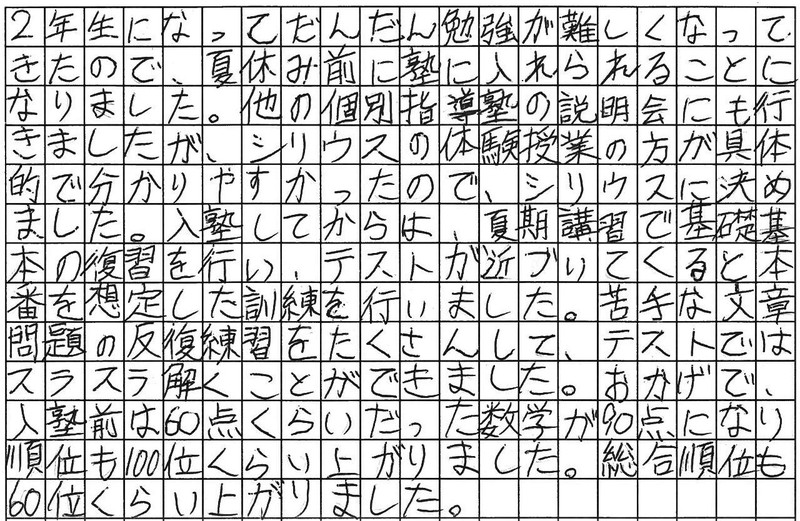 ２年生になってだんだん勉強が難しくなって
きたので、夏休み前に塾に入れられることに
なりました。他の個別指導塾の説明会にも行
きましたが、シリウスの体験授業の方が具体
的で分かりやすかったので、シリウスに決め
ました。入塾してからは、夏期講習で基礎基
本の復習を行い、テストが近づいてくると本
番を想定した訓練を行いました。苦手な文章
問題の反復練習をたくさんして、テストでは
スラスラ解くことができました。おかげで、
入塾前は60点くらいだった数学が90点になり
順位も100位くらい上がりました。総合順位も
60位くらい上がりました。